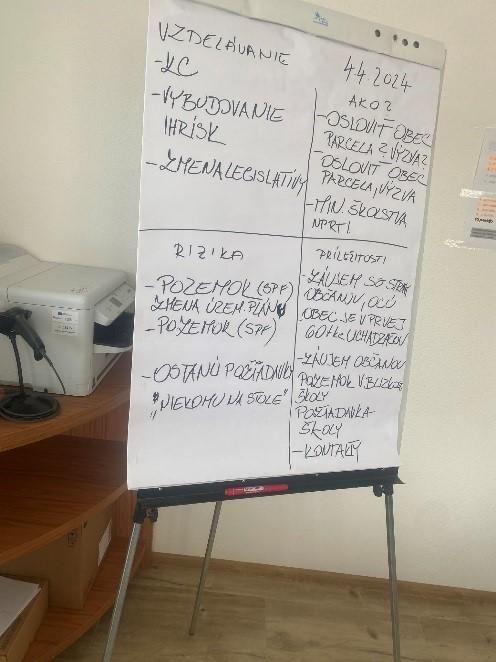 VZDELÁVANIE
- KC
- VYBUDOVANIE
IHRÍSK
- ZMENA LEGISLATÍVY
4.4.2024
AKO?
- OSLOVIŤ OBEC
PARCELA?, VÝZVA?
- OSLOVIŤ OBEC
PARCELA, VÝZVA
- MIN. ŠKOLSTVA
NPRTI
RIZIKA
- POZEMOK (SPF)
ZMENA ÚZEM. PLÁNU
- POZEMOK (SPF)
- OSTANÚ POŽIADAVKY
"NIEKOMU NA STOLE"
PRÍLEŽITOSTI
- ZÁUJEM SO STRANY
OBČANOV, OCÚ
OBEC JE V PRVEJ
UCHÁDZAČOV
- ZÁUJEM OBČANOV
POZEMOK V BLÍZKOSTI
ŠKOLY
POŽIADAVKA
ŠKOLY
- KONTAKTY